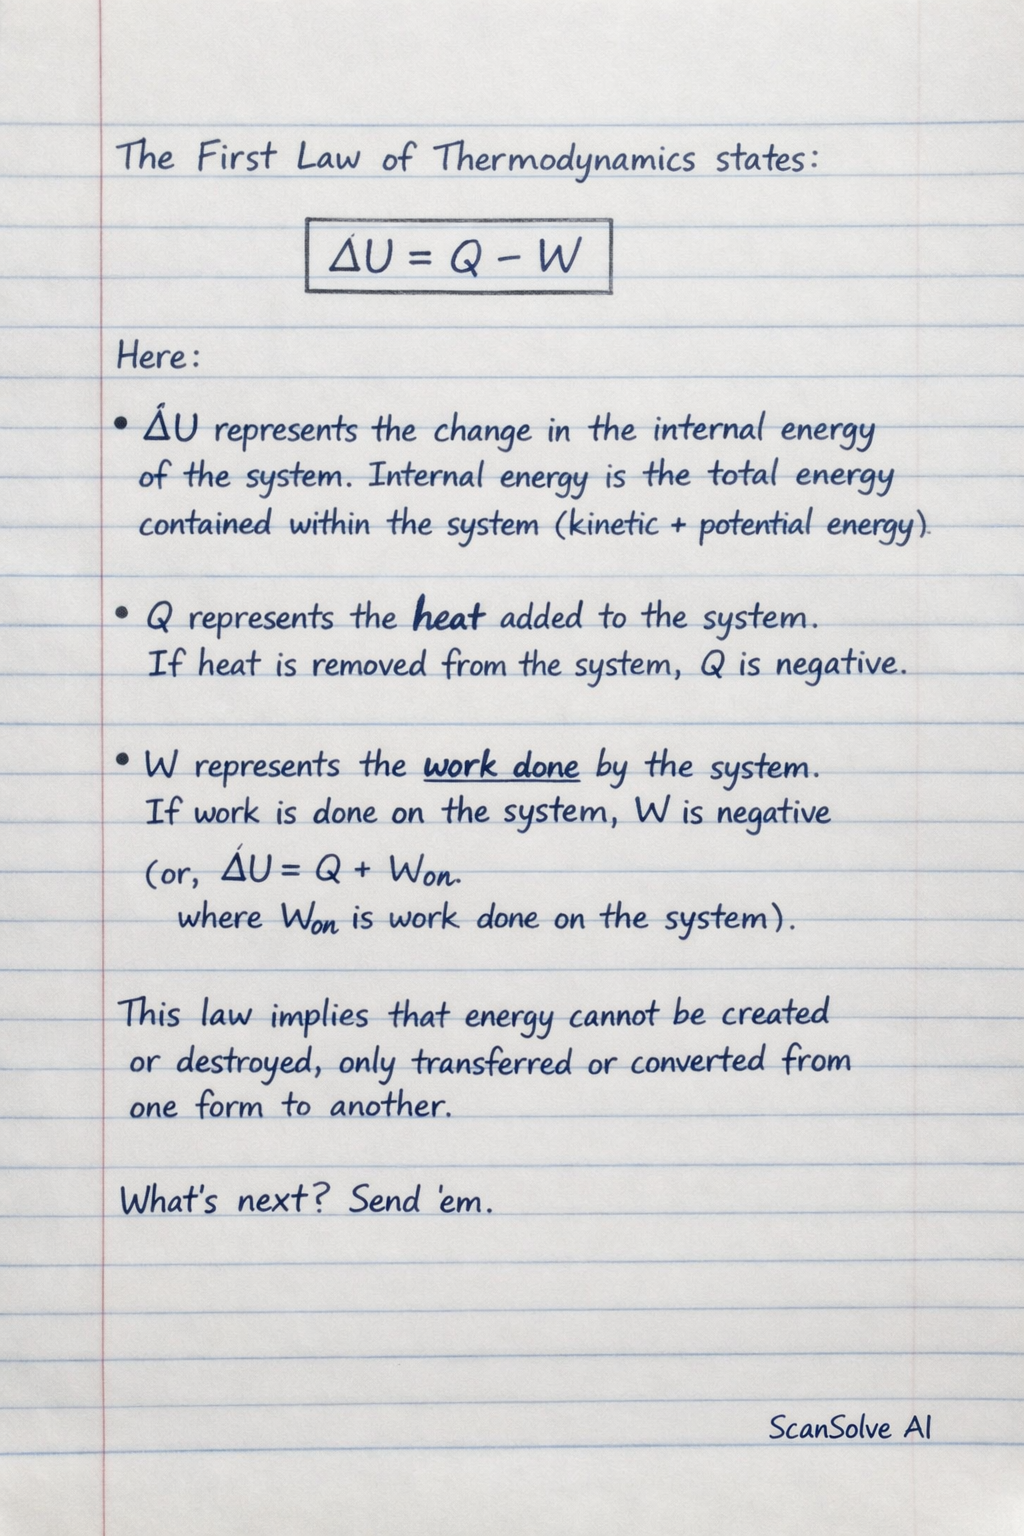 The First Law of Thermodynamics states:
ΔU = Q − W
Here:
• ΔU represents the change in the internal energy
of the system. Internal energy is the total energy
contained within the system (kinetic + potential energy).
• Q represents the heat added to the system.
If heat is removed from the system, Q is negative.
• W represents the work done by the system.
If work is done on the system, W is negative
(or, ΔU = Q + Won.
where Won is work done on the system).
This law implies that energy cannot be created
or destroyed, only transferred or converted from
one form to another.
What's next? Send 'em.
ScanSolve AI